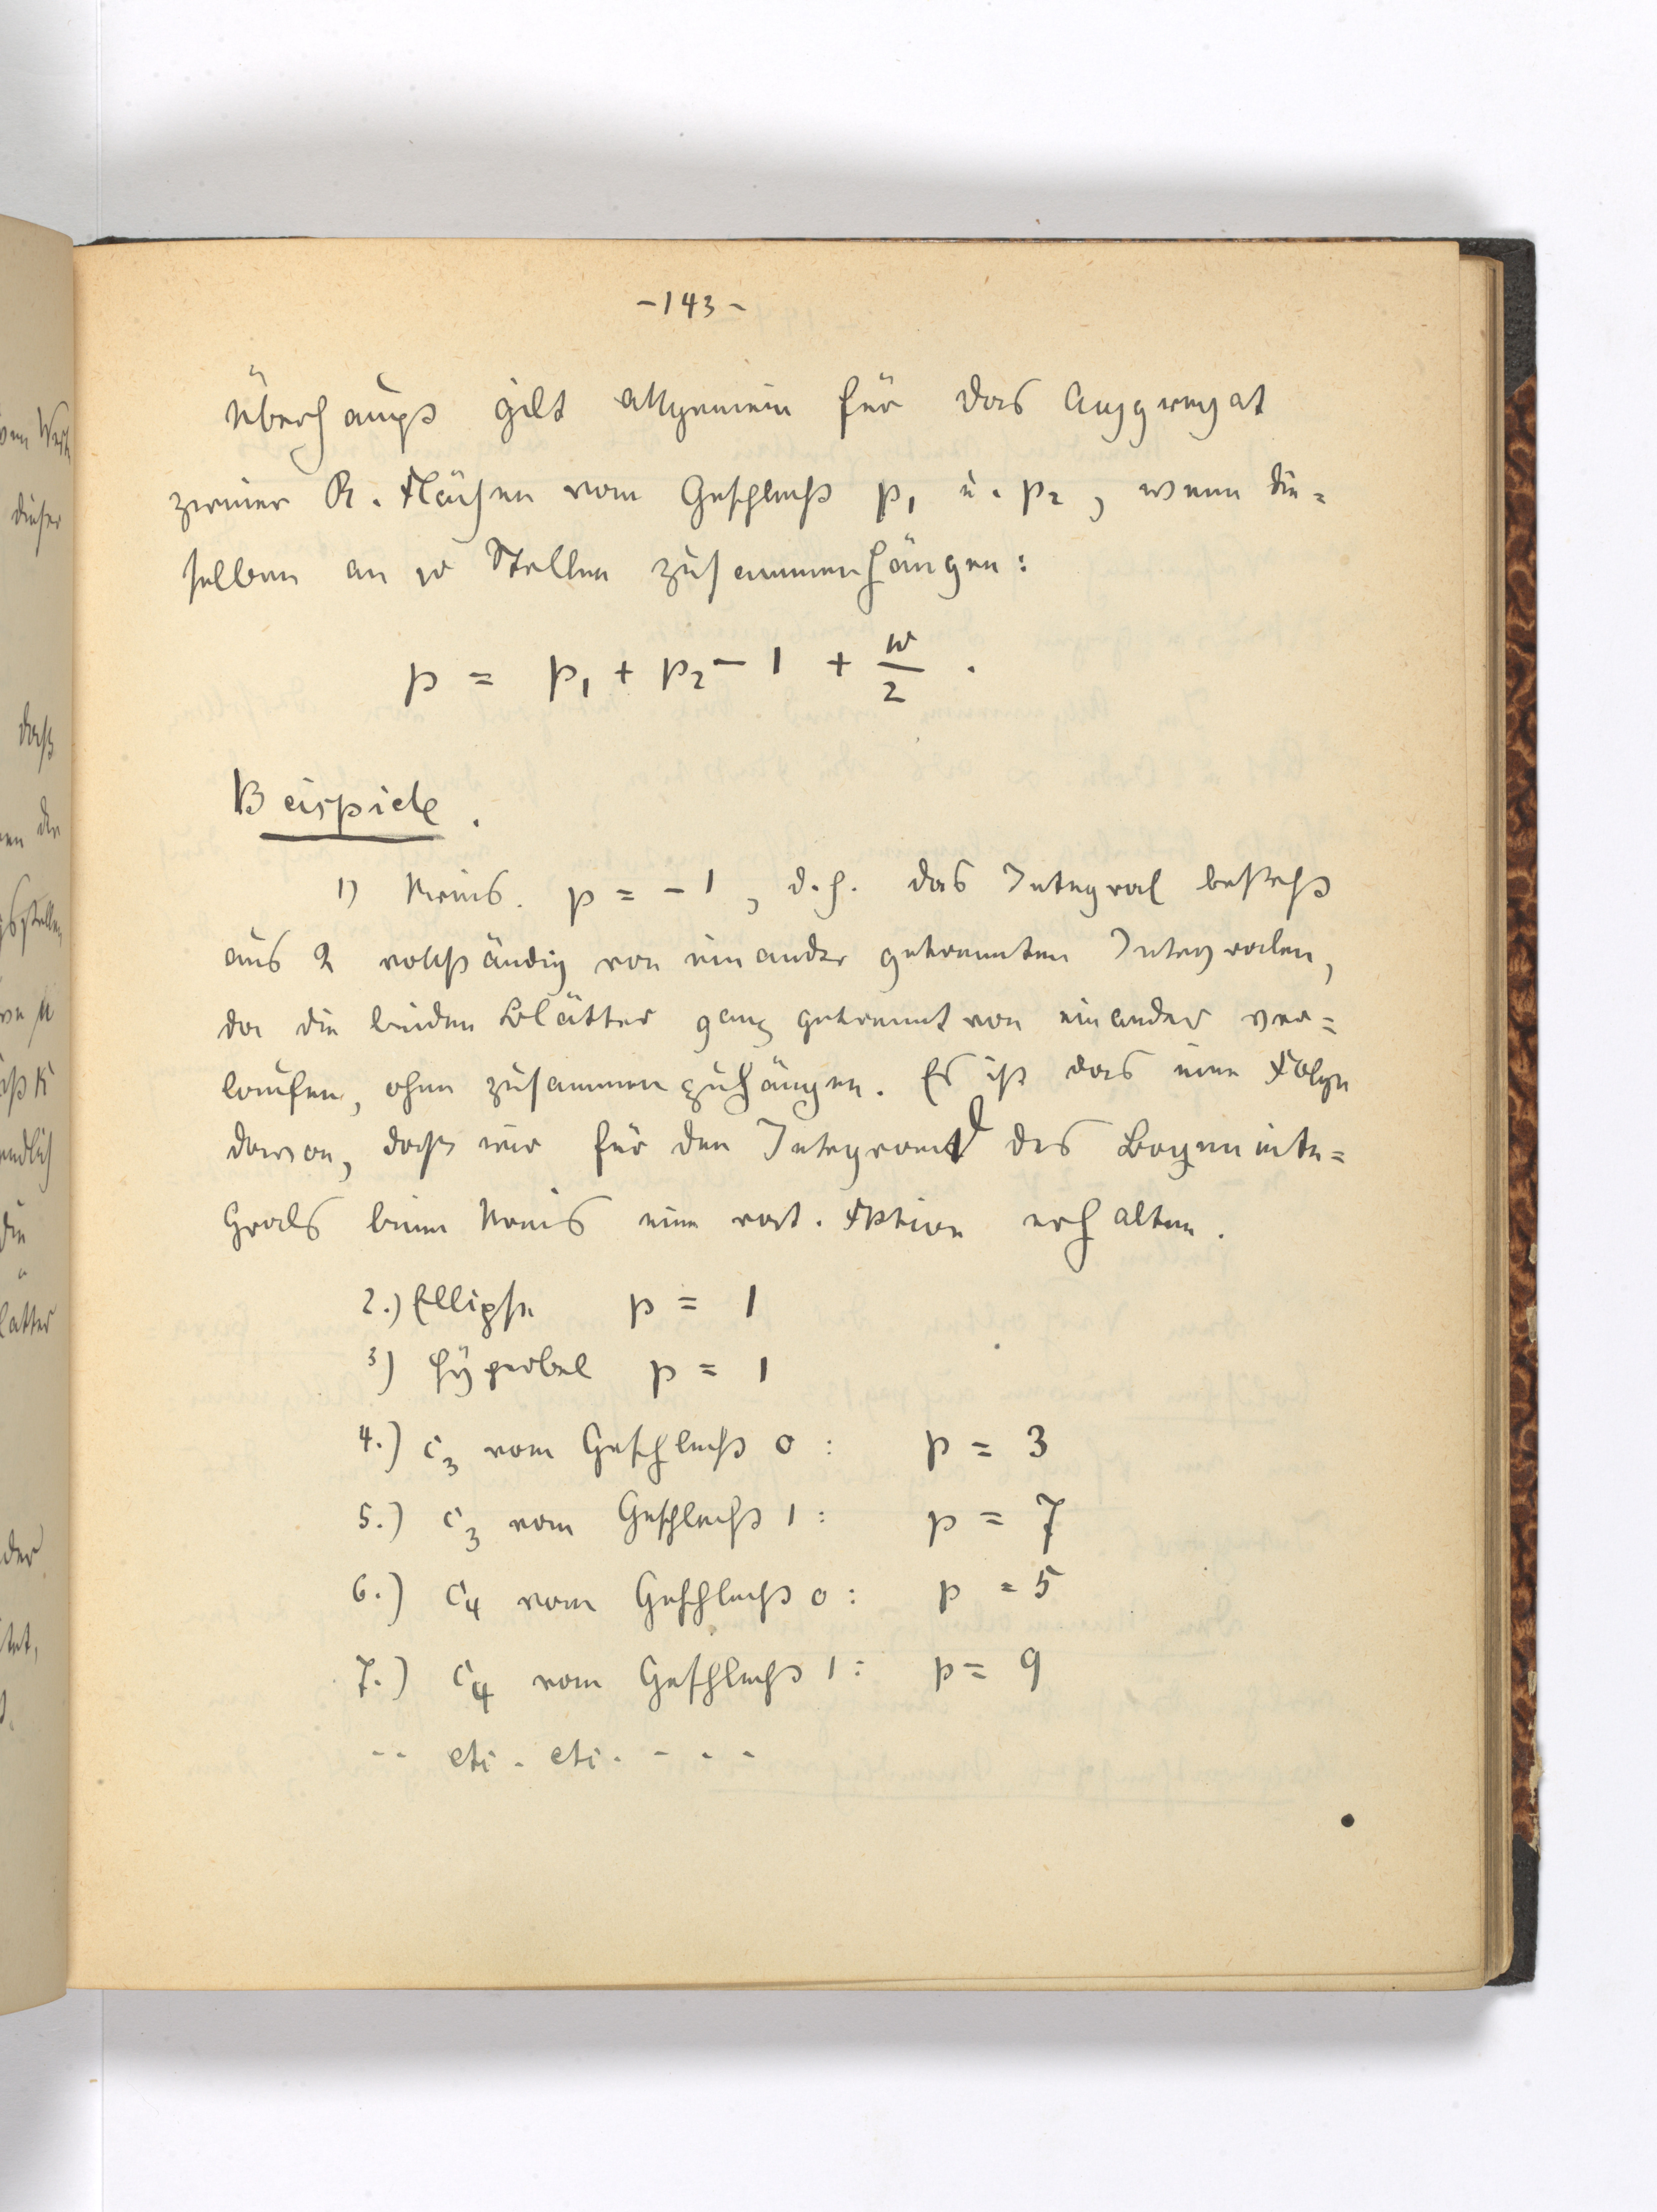 -143-
Überhaupt gilt allgemein für das Aggregat
zweier R. Flächen vom Geschlecht p₁ u. p₂, wenn die=
selben an w Stellen zusammenhängen:
p = p₁ + p₂ - 1 + w/2 .
Beispiele.
1) Kreis. p = -1, d.h. das Integral besteht
aus 2 vollständig von einander getrennten Integralen,
da die beiden Blätter ganz getrennt von einander ver=
laufen, ohne zusammenzuhängen. Es ist das eine Folge
davon, dass wir für den Integrand des Bogeninte=
grals beim Kreis eine rat. Fktion erhalten.
2.) Ellipse p = 1
3) Hyperbel p = 1
4.) C₃ vom Geschlecht 0 : p = 3
5.) C₃ vom Geschlecht 1 : p = 7
6.) C₄ vom Geschlecht 0 : p = 5
7.) C₄ vom Geschlecht 1 : p = 9
-- etc. etc. - - -